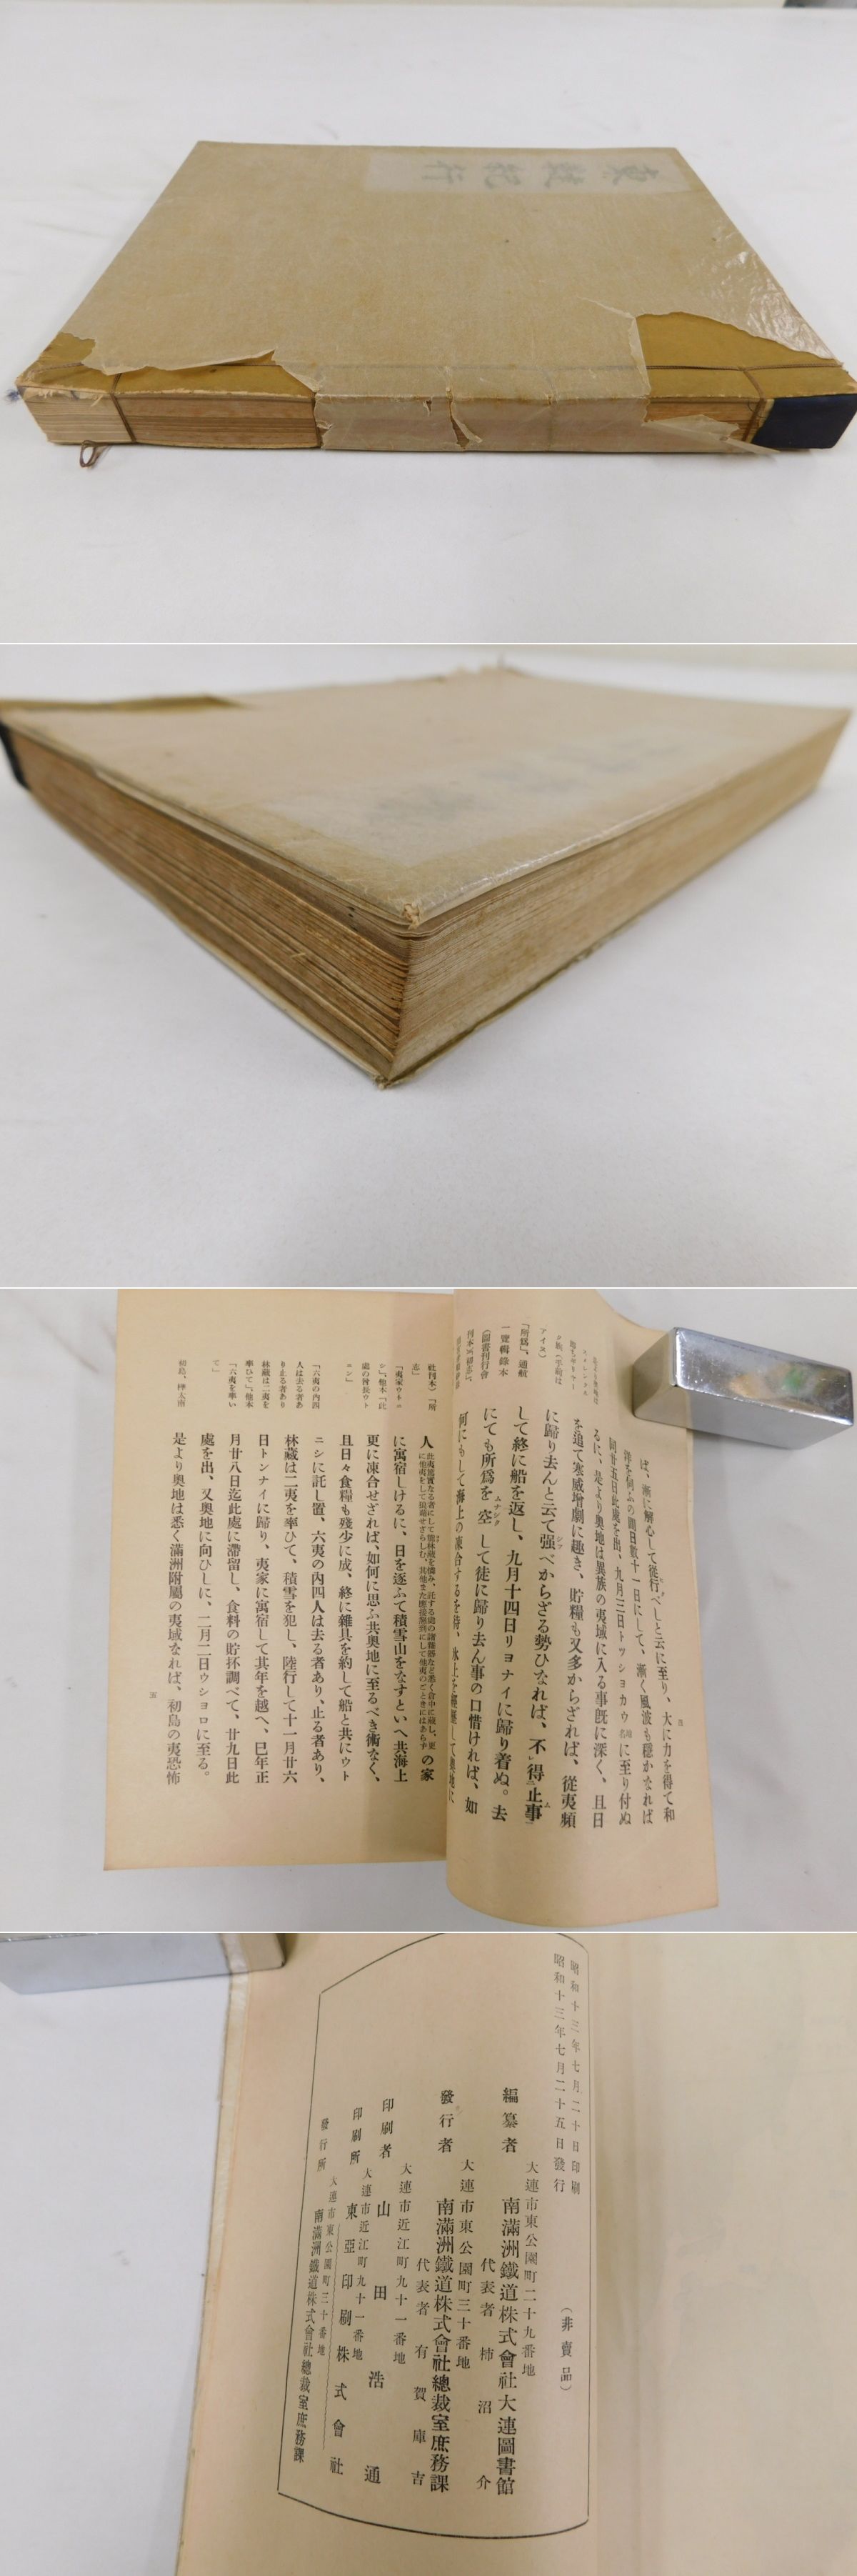 東韃紀行
ば、漸に解心して從行べしと云に至り、大に力を得て和
洋を伺ふの間日數十一日にして、漸く風波も穩かなれば
同廿五日此處を出、九月三日トッショカウ地名に至り付ぬ
るに、是より奥地は異族の夷域に入る事旣に深く、且日
を追て寒威增劇に趣き、貯糧も又多からざれば、從夷頻
に歸り去んと云て强べからざる勢ひなれば、不得止事
して終に船を返し、九月十四日リヨナイに歸り着ぬ。去
にても所爲を空しして徒に歸り去ん事の口惜ければ、如
何にもして海上の凍合するを待、氷上を經歷して奥地に
「所爲」、通航
一覽輯錄本
(圖書刊行會
社刊本)「所
志」
「夷家ウトニ
シ」、他本「此
處の酋長ウト
ニシ」
「六夷の内四
人は去る者あ
り止る者あり
林藏は二夷を
率ひて」、他本
「六夷を率い
て」
初島、樺太南
人
の家
に寓宿しけるに、日を逐ふて積雪山をなすといへ共海上
更に凍合せざれば、如何に思ふ共奥地に至るべき術なく、
且日々食糧も殘少に成、終に雜具を約して船と共にウト
ニシに託し置、六夷の内四人は去る者あり、止る者あり、
林藏は二夷を率ひて、積雪を犯し、陸行して十一月廿六
日トンナイに歸り、夷家に寓宿して其年を越へ、巳年正
月廿八日迄此處に滯留し、食料の貯抔調べて、廿九日此
處を出、又奥地に向ひしに、二月二日ウショロに至る。
是より奥地は悉く滿洲附屬の夷域なれば、初島の夷恐怖
五
昭和十三年七月二十日印刷
昭和十三年七月二十五日發行
(非賣品)
大連市東公園町二十九番地
編纂者 南滿洲鐵道株式會社大連圖書館
代表者 柿沼介
大連市東公園町三十番地
發行者 南滿洲鐵道株式會社總裁室庶務課
代表者 有賀庫吉
大連市近江町九十一番地
印刷者 山田浩通
大連市近江町九十一番地
印刷所 東亞印刷株式會社
大連市東公園町三十番地
發行所 南滿洲鐵道株式會社總裁室庶務課